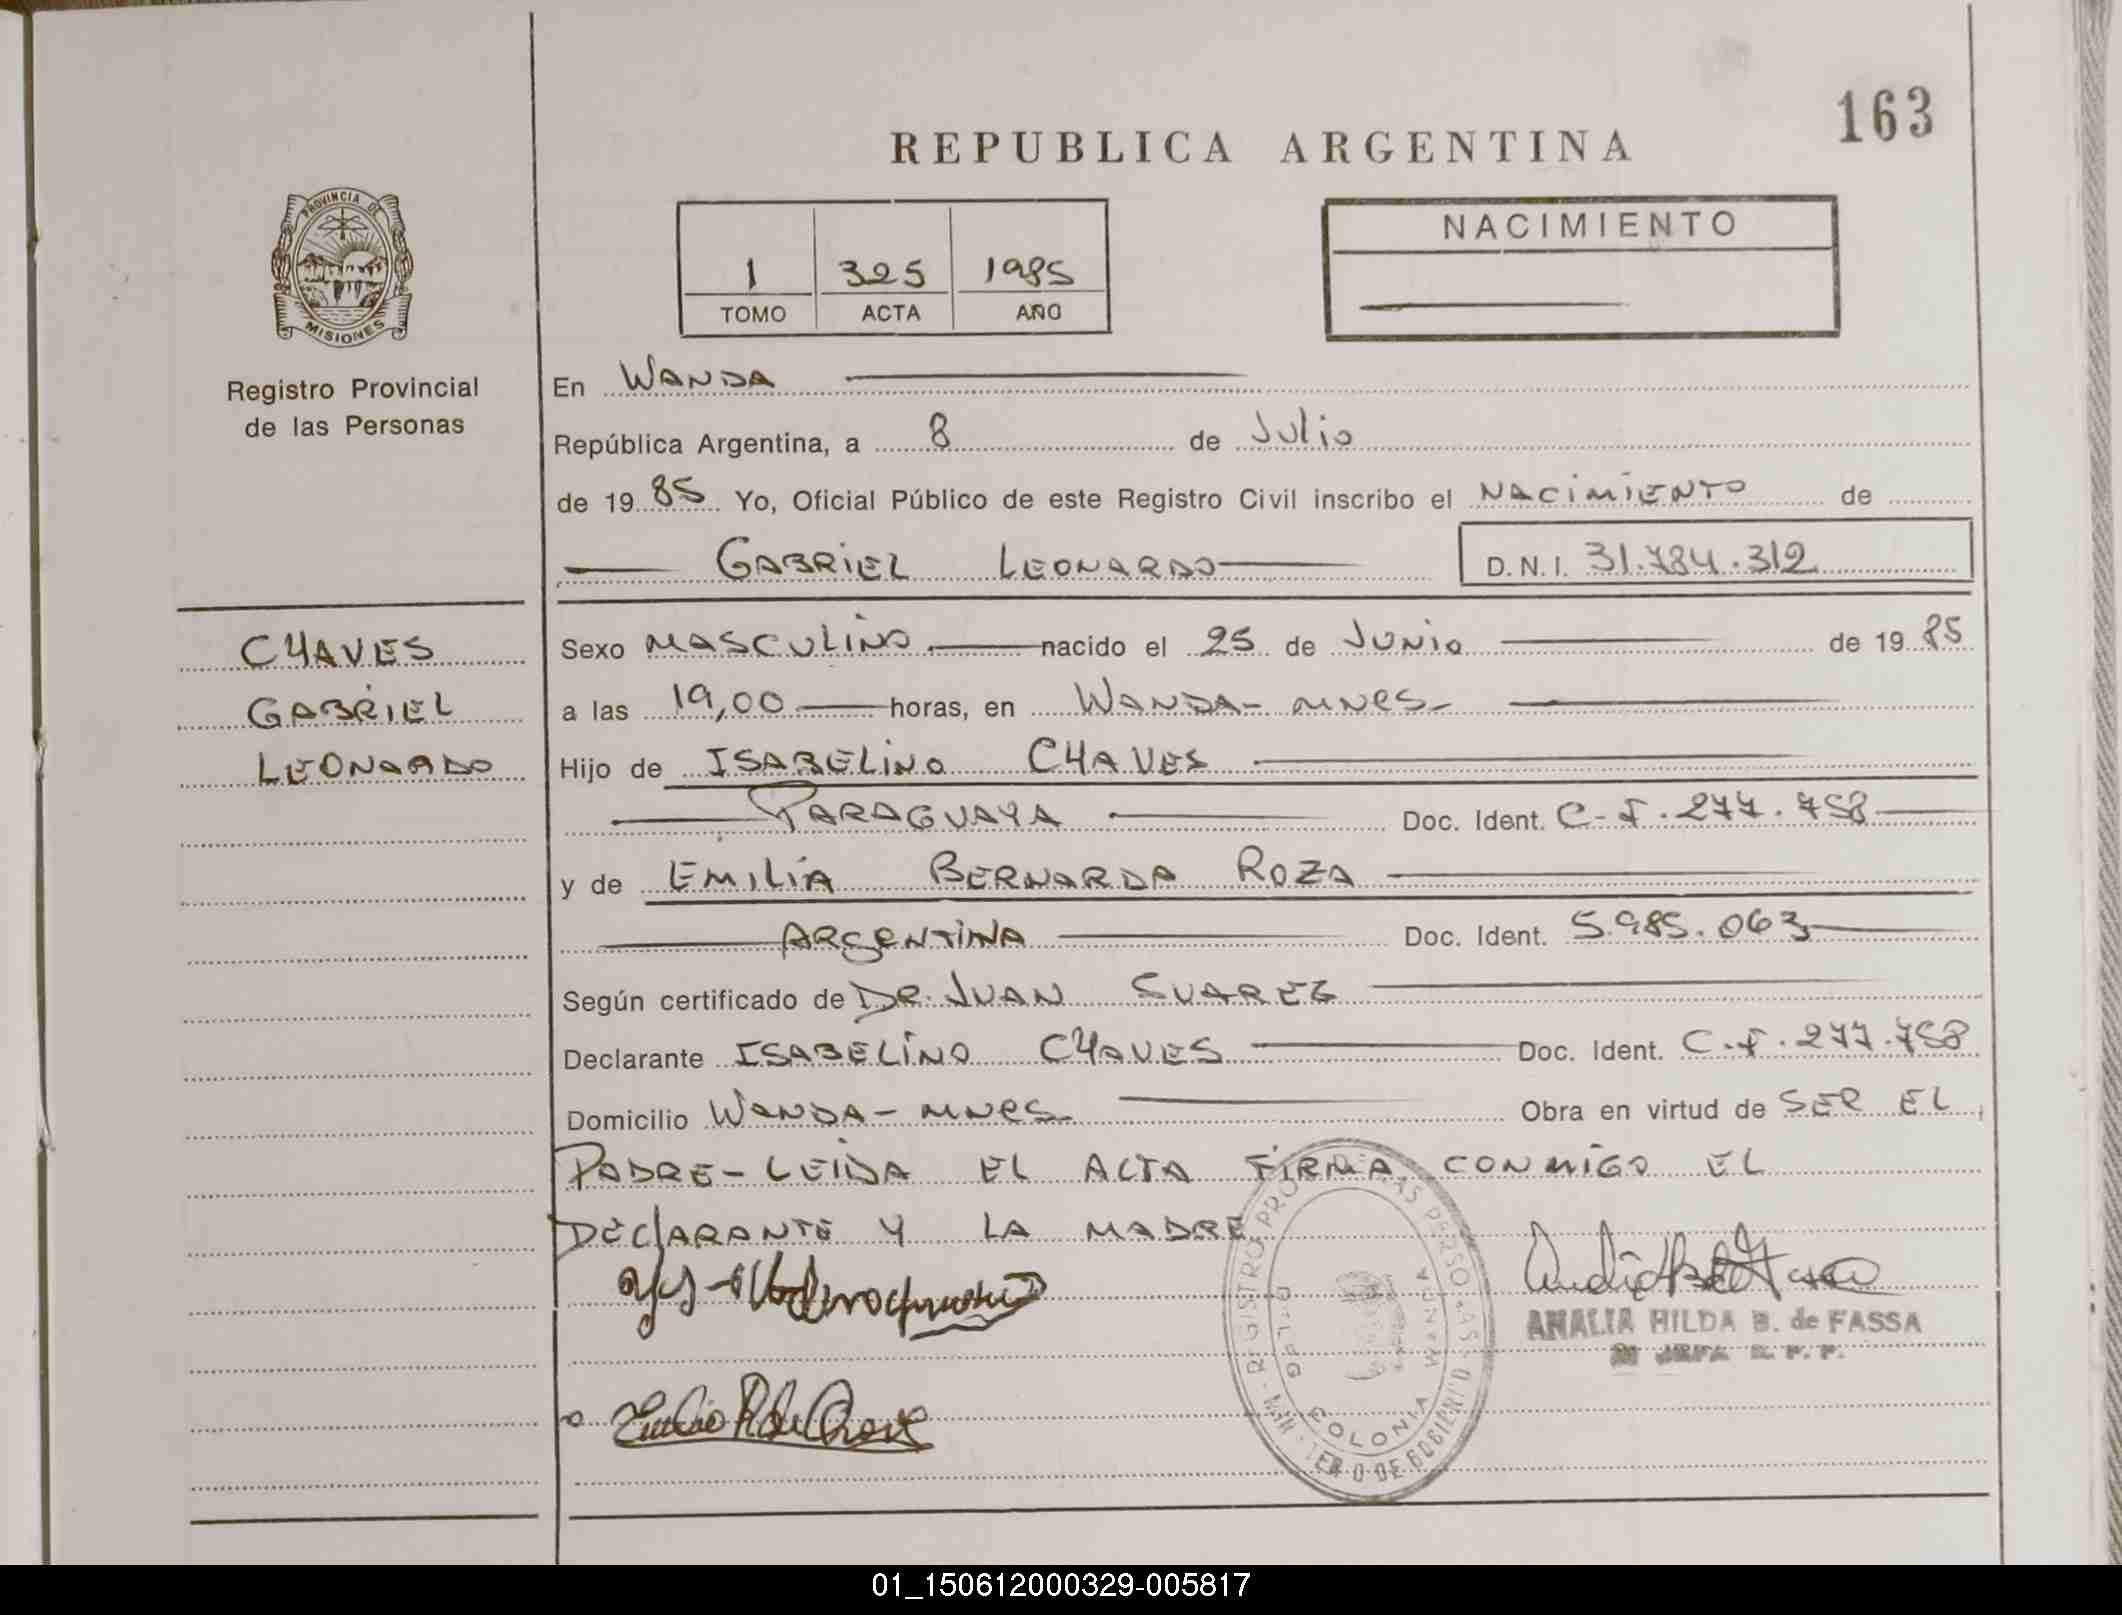 163
REPUBLICA ARGENTINA
PROVINCIA DE
MISIONES
Registro Provincial
de las Personas
1 325 1985
TOMO ACTA AÑO
NACIMIENTO
En WANDA
República Argentina, a 8 de Julio
de 1985 Yo, Oficial Público de este Registro Civil inscribo el NACIMIENTO de
GABRIEL LEONARDO D.N.I. 31.784.312
CHAVES
GABRIEL
LEONARDO
Sexo MASCULINO nacido el 25 de JUNIO de 1985
a las 19,00 horas, en WANDA - MNES-
Hijo de ISABELINO CHAVES
PARAGUAYA Doc. Ident. C-I.277.758
y de EMILIA BERNARDA ROZA
ARGENTINA Doc. Ident. 5.985.063
Según certificado de DR. JUAN SUAREZ
Declarante ISABELINO CHAVES Doc. Ident. C.I.277.758
Domicilio WANDA - MNES- Obra en virtud de SER EL
PADRE - LEIDA EL ACTA FIRMA CONMIGO EL
DECLARANTE Y LA MADRE
ANALIA HILDA B. de FASSA
COLONIA WANDA
01_150612000329-005817